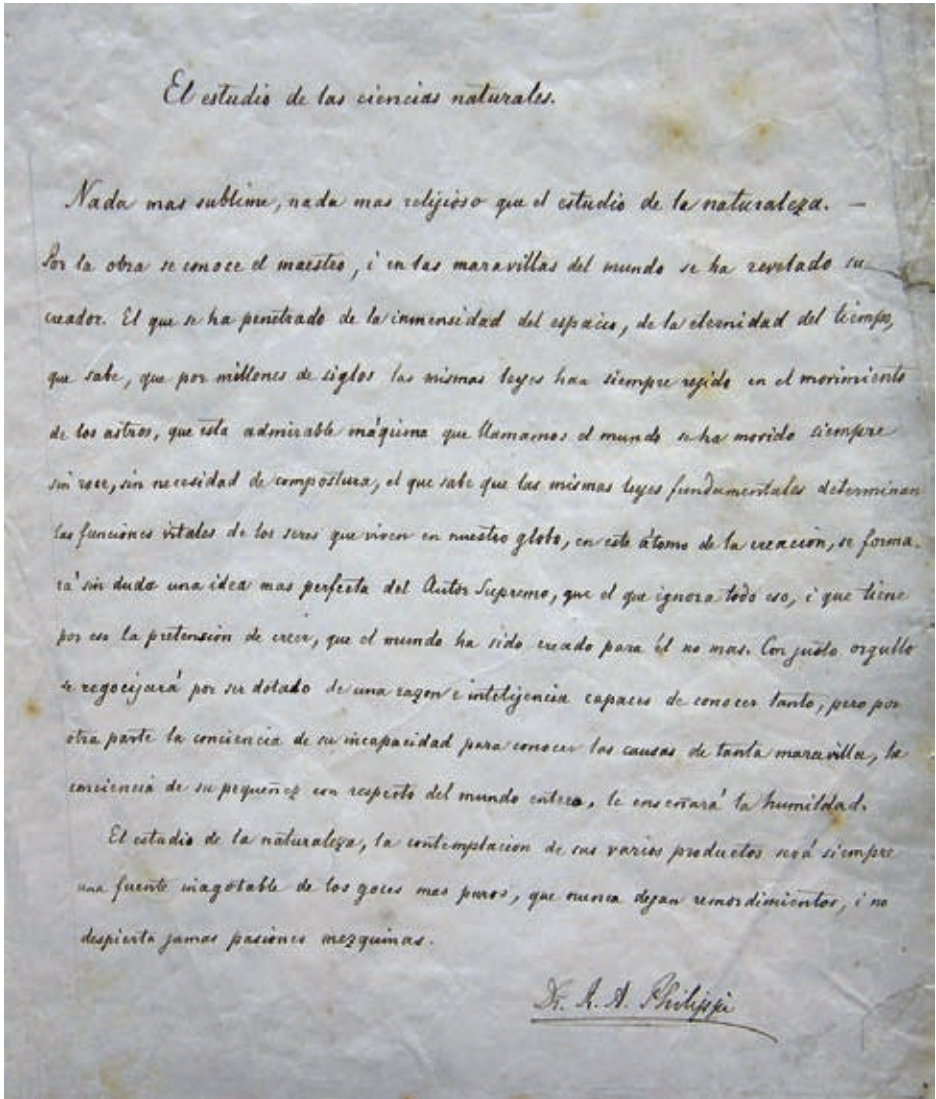 El estudio de las ciencias naturales.
Nada mas sublime, nada mas relijioso que el estudio de la naturaleza. —
Por la obra se conoce el maestro, i en las maravillas del mundo se ha revelado su
creador. El que se ha penetrado de la inmensidad del espacio, de la eternidad del tiempo,
que sabe, que por millones de siglos las mismas leyes han siempre rejido en el movimiento
de los astros, que esta admirable máquina que llamamos el mundo se ha movido siempre
sin roce, sin necesidad de compostura, el que sabe que las mismas leyes fundamentales determinan
las funciones vitales de los seres que viven en nuestro globo, en este átomo de la creacion, se forma-
rá sin duda una idea mas perfecta del Autor Supremo, que el que ignora todo eso, i que tiene
por eso la pretension de creer, que el mundo ha sido creado para él no mas. Con justo orgullo
se regocijará por ser dotado de una razon e intelijencia capaces de conocer tanto, pero por
otra parte la conciencia de su incapacidad para conocer las causas de tanta maravilla, la
conciencia de su pequeñez con respecto del mundo entero, le enseñará la humildad.
El estudio de la naturaleza, la contemplacion de sus varios productos será siempre
una fuente inagotable de los goces mas puros, que nunca dejan remordimientos, i no
despierta jamas pasiones mezquinas.
Dr. R. A. Philippi